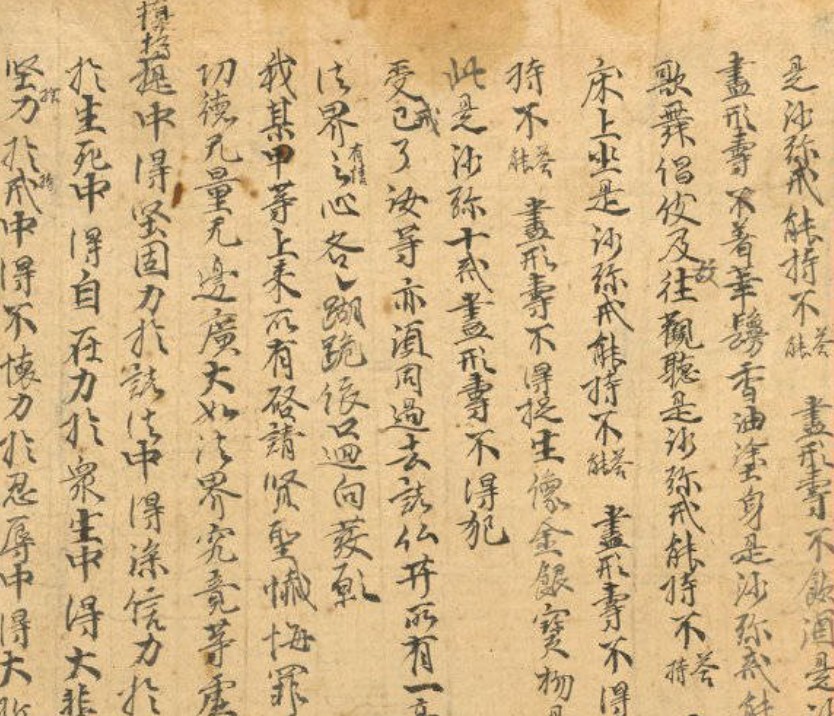 是沙弥戒能持不 答能 盡形壽不飲酒是沙
盡形壽不著華鬘香油塗身是沙弥戒能
歌舞倡伎及故往觀聽是沙弥戒能持不 答持
床上坐是沙弥戒能持不 答能 盡形壽不得
持不 答能 盡形壽不得捉生像金銀寶物是
此是沙弥十戒盡形壽不得犯
受戒已了汝等亦須同過去諸仏菩薩所有一
法界有情之心各各蹋跪 口迴向發願
我某甲等上来所有啓請贤聖懺悔罪
功德无量无邊廣大如法界究竟等虚
中得坚固力於諸法中得深信力於
於生死中得自在力於衆生中得大悲
坚力於戒中得不懷力於忍辱中得大